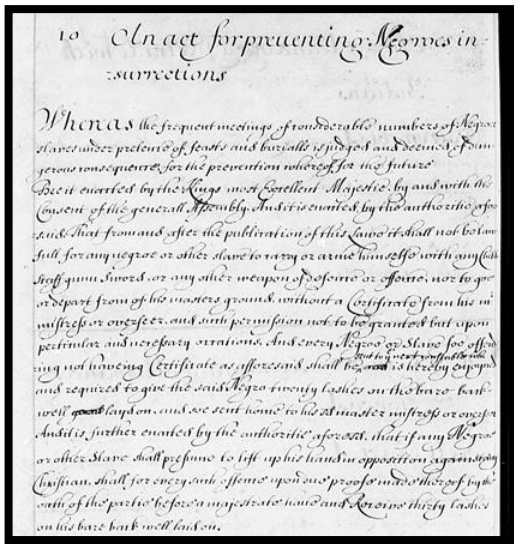 10 An act for preventing Negroes in-
surrections
Whereas the frequent meetings of considerable numbers of Negroe
slaves under pretence of feasts and burialls is judged and deemed of dan-
gerous consequence, for the prevention whereof for the future
Be it enacted by the Kings most Excellent Majestie, by and with the
Consent of the generall Assembly. And it is enacted, by the authoritie afore
said, That from and after the publication of this Lawe it shall not be law
full, for any negroe or other slave to carry or arme himselfe with any Clubb
staffe gunn, sword, or any other weapon of defence or offence, nor to goe
or depart from of his masters ground, without a Certificate from his mr
mistress or overseer, and such permission not to be granted but upon
perticular and necessary occations, And every Negroe or Slave soe offen
ing not haveing Certificate as afforesaid shall be sent to next constable who is hereby enjoyned
and required to give the said Negro twenty lashes on the bare back
well laydon, and soe sent home to his sd master mistress or overser
And it is, further enacted by the authoritie aforesd, that if any Negroe
or other Slave shall presume to lift up his hand in opposition against any
Christian, shall for every such offence upon due proofe made thereof by the
oath of the partie before a majestrate have and Receive thirty lashes
on his bare back well laid on.